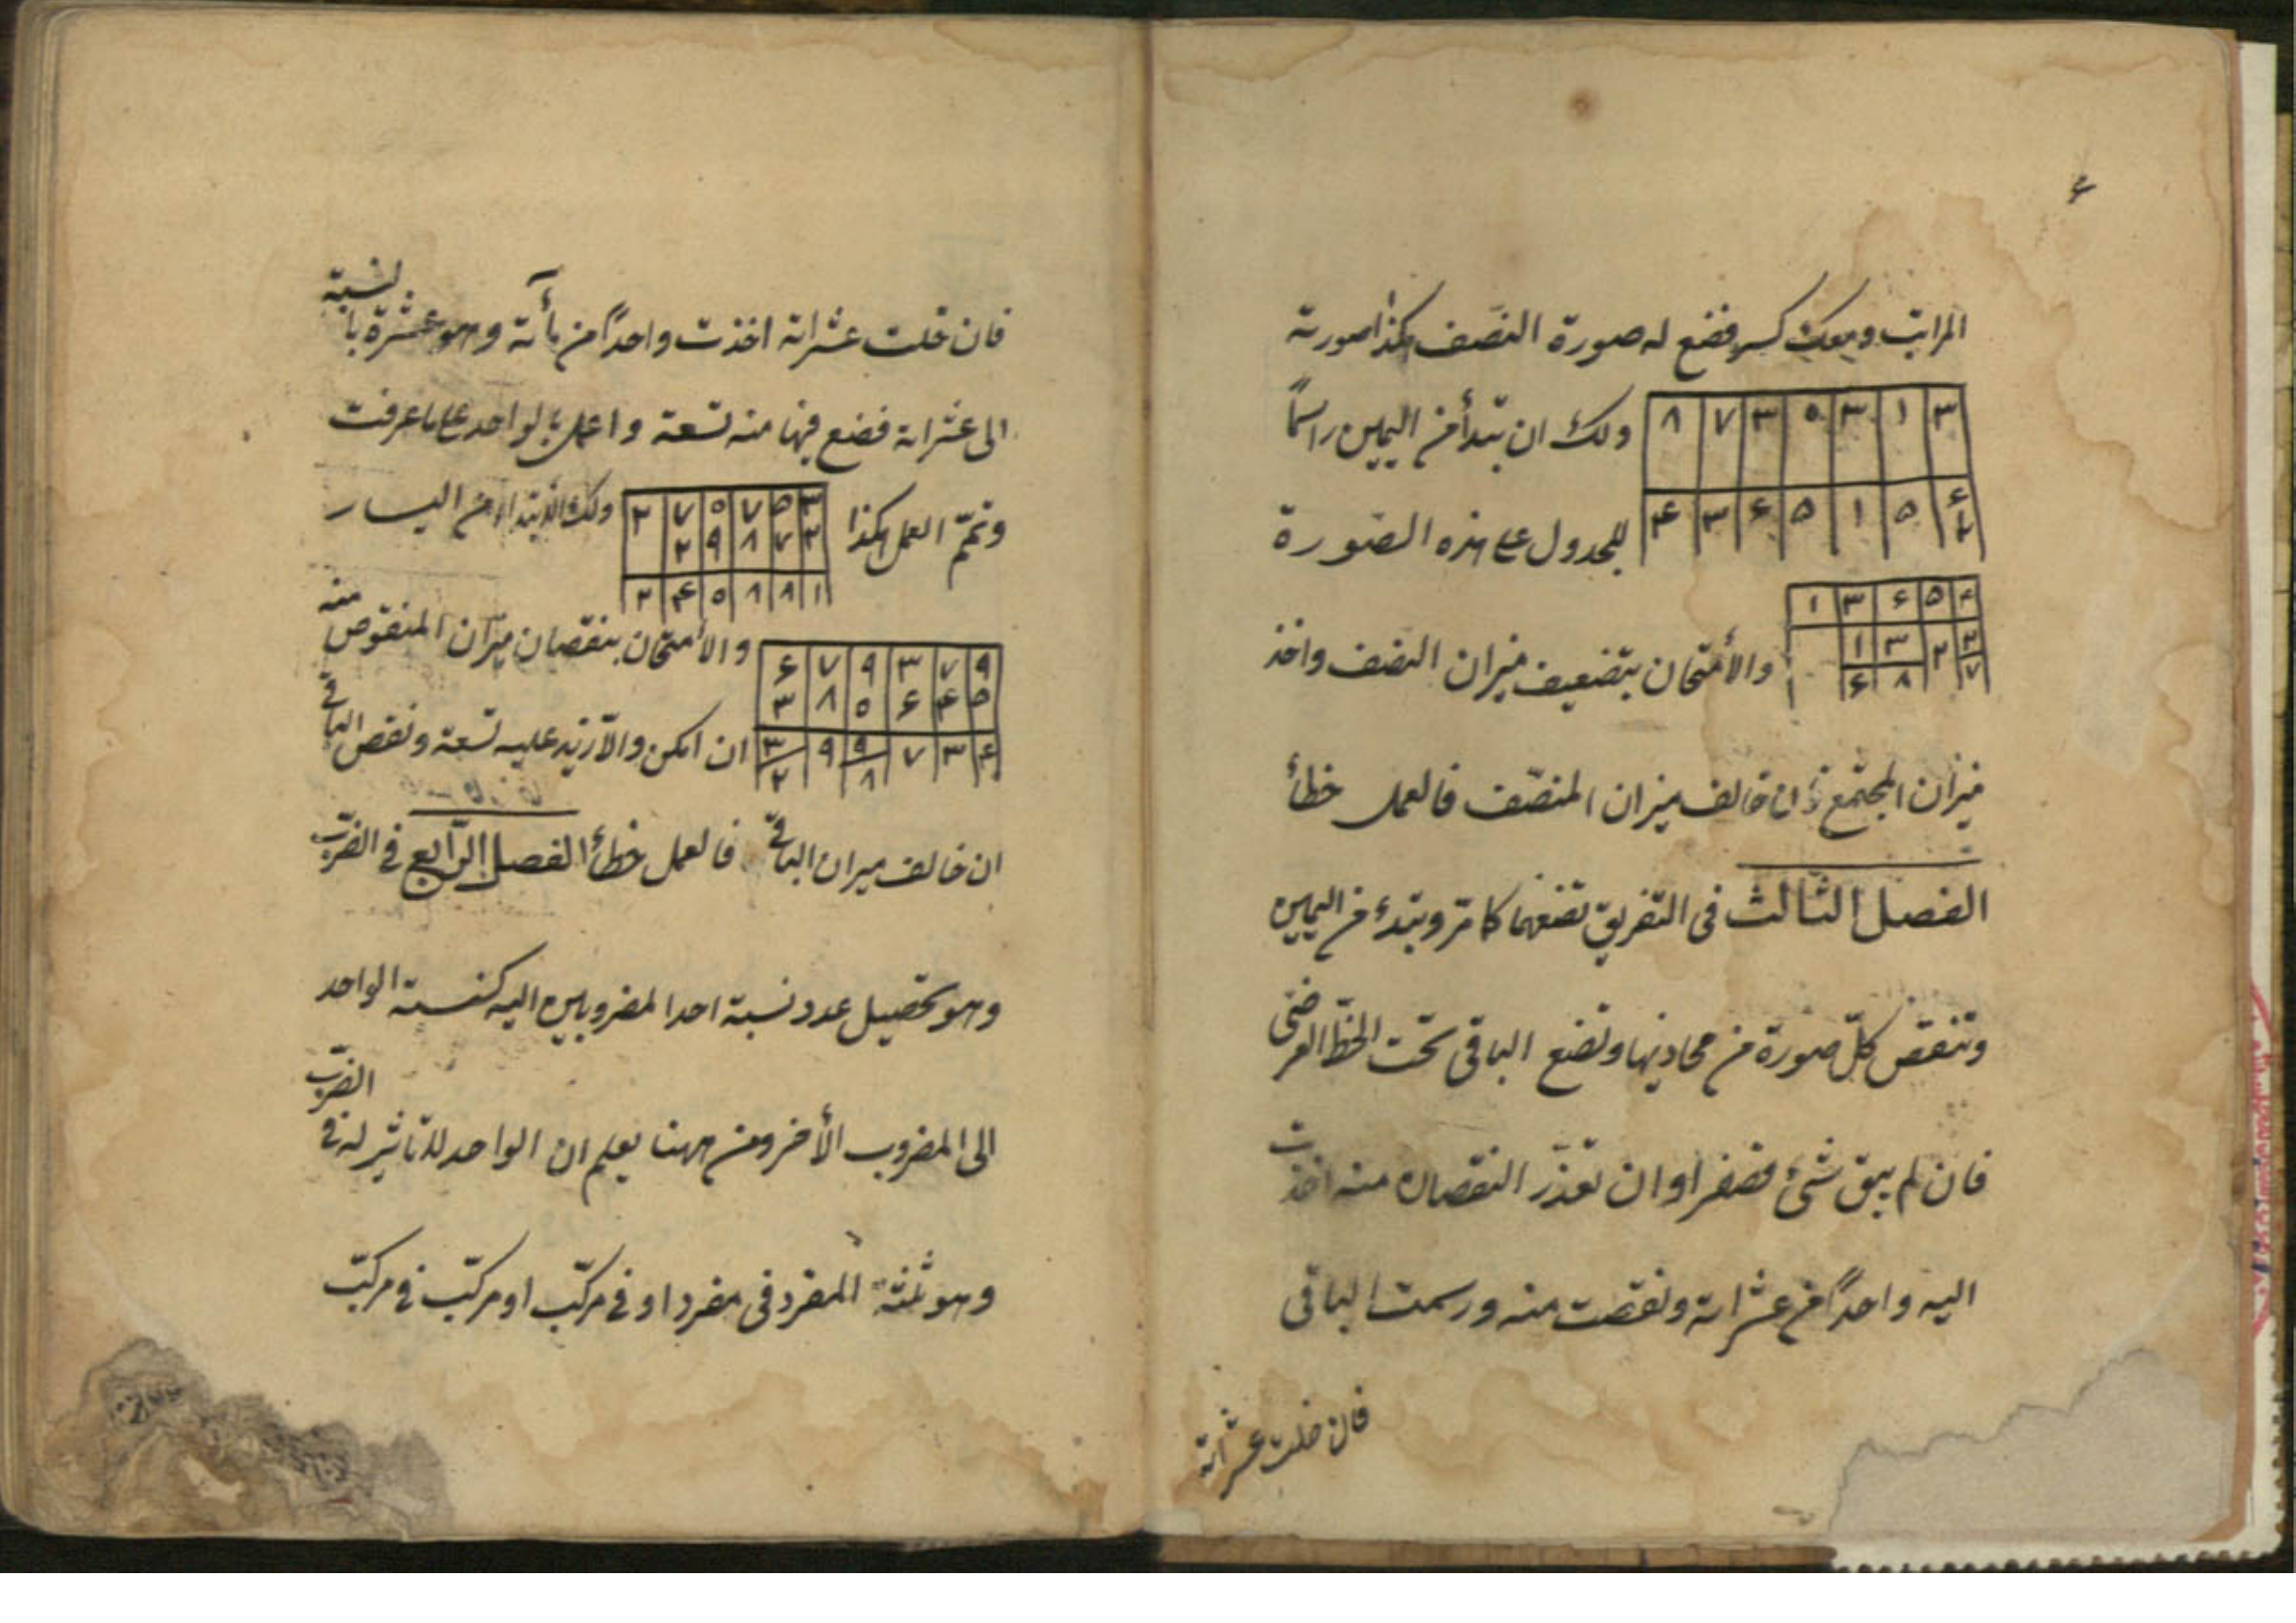 ۴
المراتب ومعك كسر فضع له صورة النصف هكذا صورته
۸ ۷ ۳ ۵ ۳ ۱ ۳
۴ ۳ ۶ ۵ ۱ ۵ ۶
۲
ولك ان تبدأ من اليمين راسماً
للجدول على هذه الصورة
۱ ۳ ۶ ۵ ۴
۱ ۳ ۲ ۳
۶ ۸ ۷
والأمتحان بتضعيف ميزان النصف واخذ
ميزان المجتمع فان خالف ميزان المنصّف فالعمل خطأ
الفصل الثالث فى التفريق تضعهما كما مرّ وتبتدء من اليمين
وتنقص كلّ صورة من محاذيها وتضع الباقى تحت الخطّ العرضى
فان لم يبق شئ فصفرا وان تعذّر النقصان منه اخذت
اليه واحداً من عشراته ونقصت منه ورسمت الباقى
فان خلت عشراته
فان خلت عشراته اخذت واحداً من مأته وهو عشرة بالنسبة
الى عشراته فضع فيها منه تسعة واعمل بالواحد على ما عرفت
وتمّم العمل هكذا
۲ ۷ ۵ ۷ ۵ ۳
۲ ۹ ۸ ۷ ۲
۲ ۴ ۵ ۸ ۸ ۱
ولك الأبتداء من اليسار
۶ ۷ ۹ ۳ ۷ ۹
۳ ۸ ۵ ۶ ۴ ۵
۳ ۹ ۹ ۷ ۳ ۴
۲ ۸
والأمتحان بنقصان ميزان المنقوص منه
ان امكن والّا زيد عليه تسعة ونقص الباقى
ان خالف ميزان الباقى فالعمل خطأ الفصل الرّابع فى الضرب
وهو تحصيل عدد نسبة احد المضروبين اليه كنسبة الواحد
الى المضروب الأخر ومن ههنا يعلم ان الواحد لا تاثير له فى الضرب
وهو ثلثة المفرد فى مفرد او فى مركّب او مركّب فى مركّب